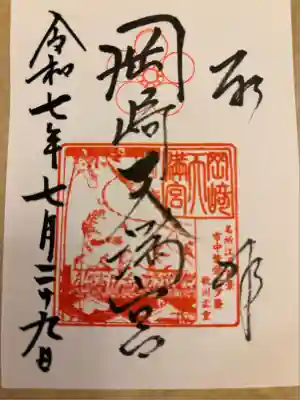 奉拝
岡崎天満宮
令和七年七月二十九日
岡崎
天満宮